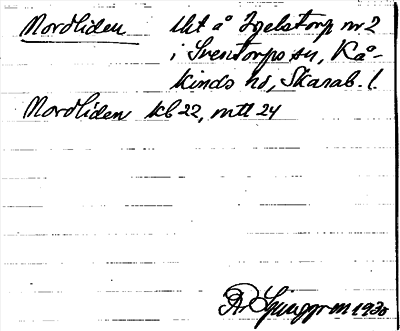 Nordliden lht å Igelstorp nr 2
i Sventorps sn, Kå-
kinds hd, Skarab. l.
Nordliden kb 22, mtl 24
R Ljunggren 1930